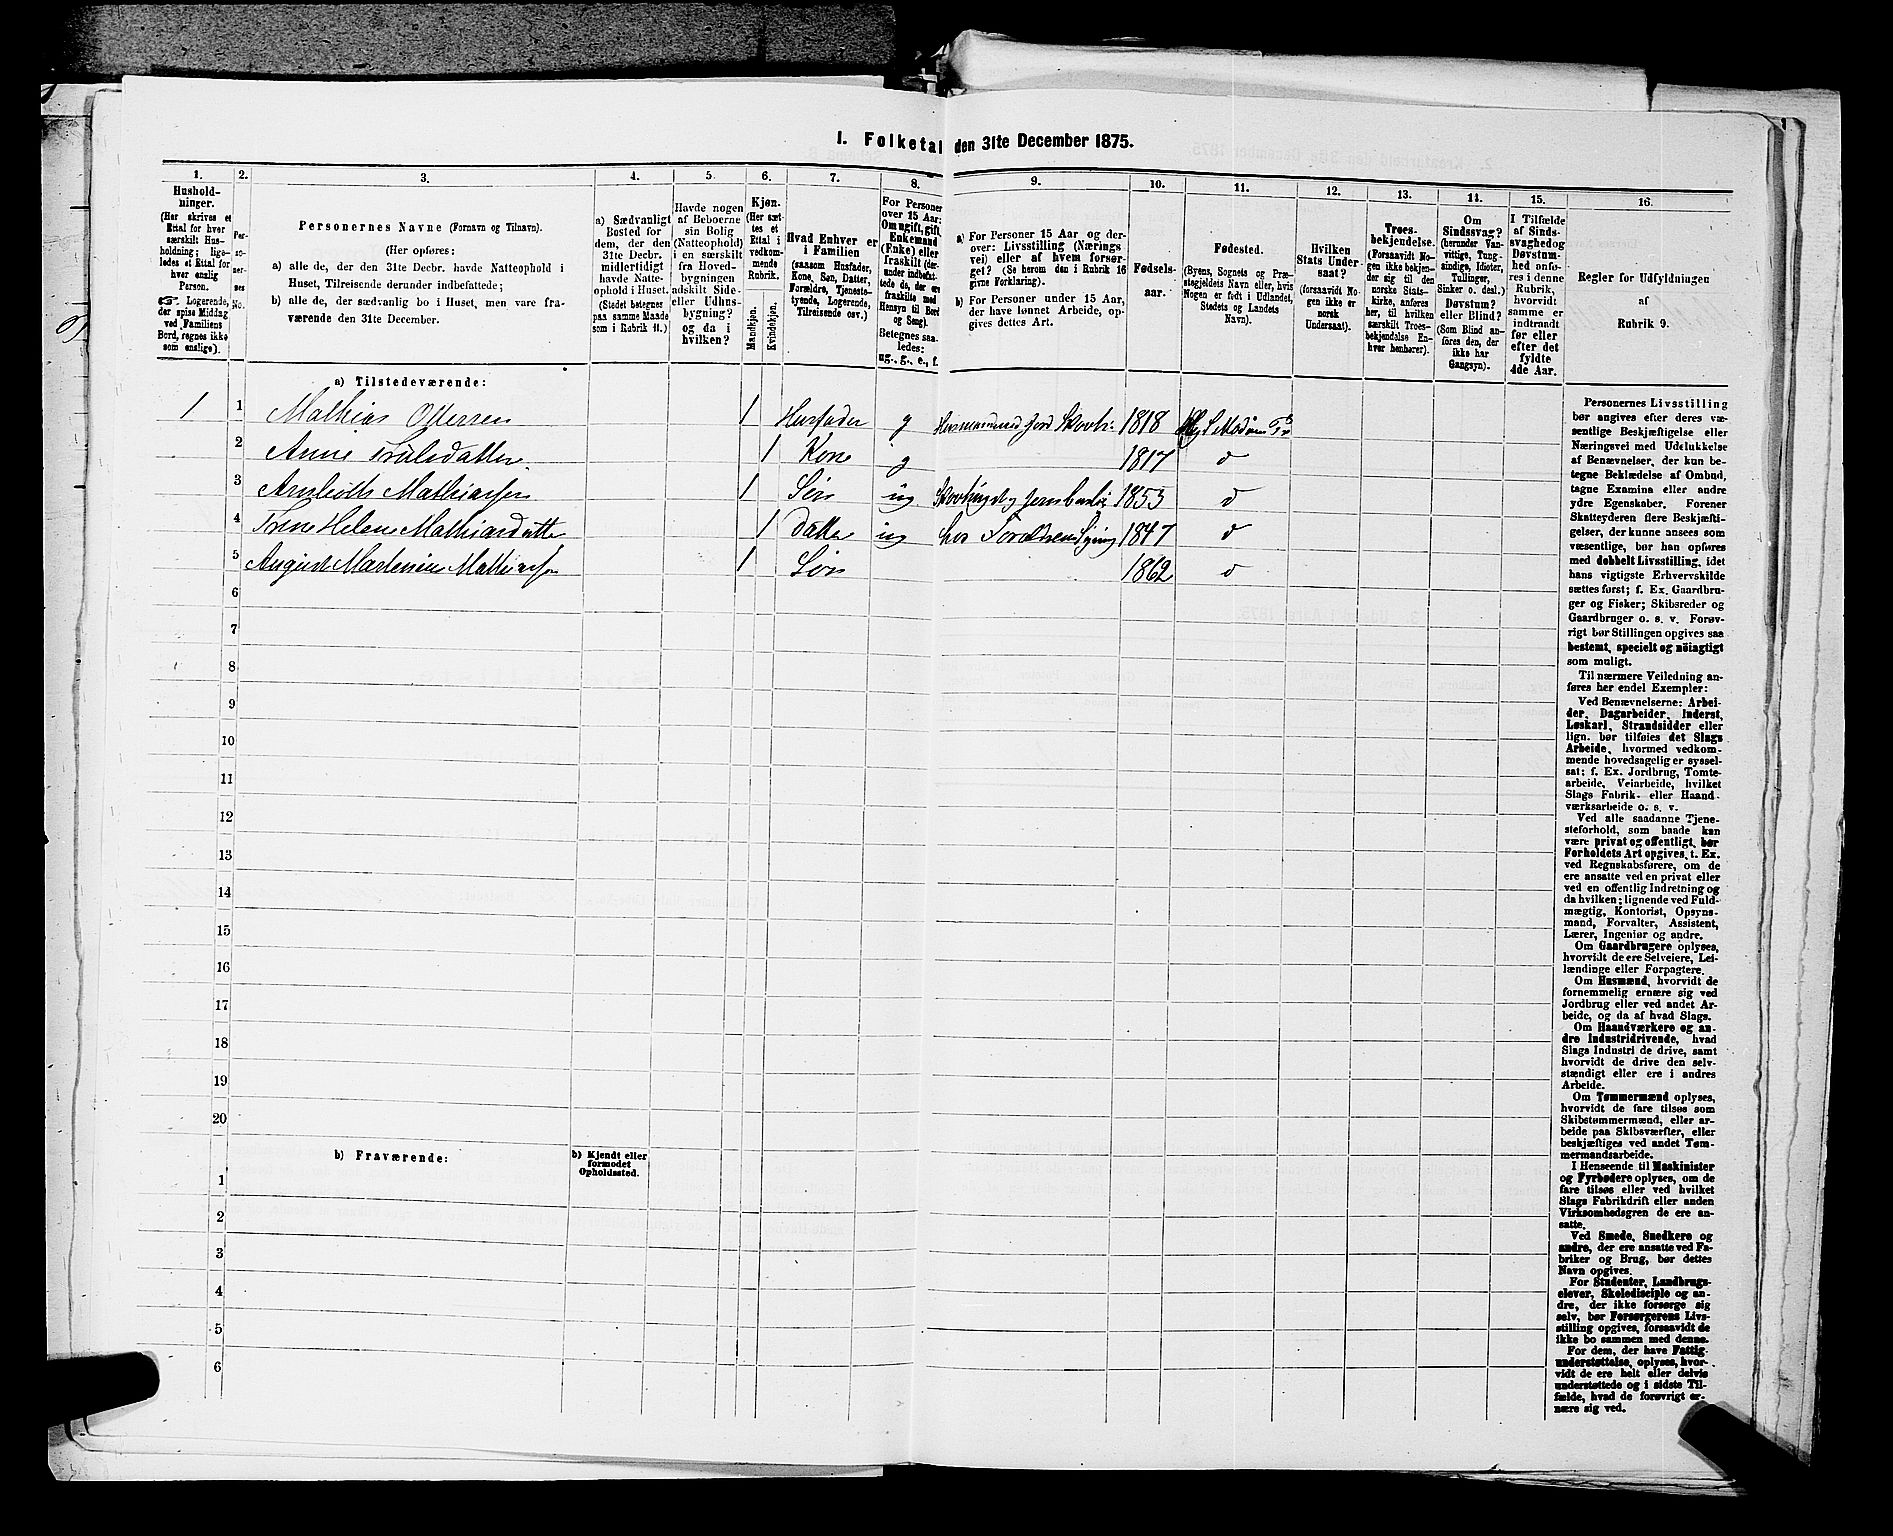 I. Folketal den 31te December 1875.
1. 2. 3. 4. 5. 6. 7. 8. 9. 10. 11. 12. 13. 14. 15. 16.
Hushold-
ninger.
(Her skrives et
Ettal for hver
særskilt Hus-
holdning; lige-
ledes et Ettal for
hver enslig
Person.
Logerende,
der spise Middag
ved Familiens
Bord, regnes ikke
som enslige).
Per-
so-
ner-
nes
No.
Personernes Navne (Fornavn og Tilnavn).
(Her opføres:
a) alle de, der den 31te Decbr. havde Natteophold i
Huset, Tilreisende derunder indbefattede;
b) alle de, der sædvanlig bo i Huset, men vare fra-
værende den 31te December.
a) Sædvanligt
Bosted for
dem, der den
31te Decbr.
midlertidigt
havde Natte-
ophold i Huset.
(Stedet betegnes
paa samme Maade
som i Rubrik 11.)
Havde nogen
af Beboerne
sin Bolig
(Natteophold)
i en særskilt
fra Hoved-
bygningen
adskilt Side-
eller Udhus-
bygning?
og da i
hvilken?
Kjøn.
(Her sæt-
tes et
Ettal i
vedkom-
mende
Rubrik.
Mandkjøn.
Kvindekjøn.
Hvad Enhver er
i Familien
(saasom Husfader,
Kone, Søn, Datter,
Forældre, Tjeneste-
tyende, Logerende,
Tilreisende osv.)
For Personer
over 15 Aar:
Om ugift, gift,
Enkemand
(Enke) eller
fraskilt (der-
under indbefat-
tede de, der ere
fraskilte med
Hensyn til Bord
og Seng).
Betegnes saa-
ledes:
ug., g., e., f.
a) For Personer 15 Aar og der-
over: Livsstilling (Nærings
vei) eller af hvem forsør-
get? (Se herom den i Rubrik 16
givne Forklaring).
b) For Personer under 15 Aar,
der have lønnet Arbeide, op-
gives dettes Art.
Fødsels-
aar.
Fødested.
(Byens, Sognets og Præ-
stegjeldets Navn eller, hvis
Nogen er født i Udlandet,
Stedets og Landets
Navn).
Hvilken
Stats Under-
saat?
(forsaavidt No-
gen ikke er
norsk
Undersaat).
Troes-
bekjendelse.
(Forsaavidt No-
gen ikke bekjen-
der sig til den
norske Stats-
kirke, anføres
her, til hvilken
særskilt Troes-
bekjendelse En-
hver henhører).
Om
Sindssvag?
(herunder Van-
vittige, Tung-
sindige, Idioter,
Tullinger,
Sinker o. desl.)
Døvstum?
eller Blind?
(Som Blind an-
føres den, der
ikke har
Gangsyn).
I Tilfælde
af Sinds-
svaghedog
Døvstum-
hed anfø-
res i denne
Rubrik,
hvorvidt
samme er
indtrandt
før eller
efter det
fyldte
4de Aar.
Regler for Udfyldningen
af
Rubrik 9.
a) Tilstedeværende:
1 1 Mathias Ottersen 1 Husfader g 1818
2 Anne Trulsdatter 1 Kone g 1817 d
3 Arnholth Mathiassen 1 Søn ug 1853 d
4 Trine Helene Mathiasdatter 1 datter ug hos Forældrene Syning 1847 d
5 August Martenius Mathiassen 1 Søn 1862 d
6
7
8
9
10
11
12
13
14
15
16
17
18
19
20
b) Fraværende:
b) Kjendt eller
formodet
Opholdssted.
1
2
3
4
5
6
Personernes Livsstilling
bør angives efter deres væ-
sentlige Beskjæftigelse eller
Næringsvei med Udelukkelse
af Benævnelser, der kun be-
tegne Beklædelse af Ombud,
tagne Examina eller andre
ydre Egenskaber. Forener
Skatteyderen flere Beskjæfti-
gelser, der kunne ansees som
væsentlige, bør han opføres
med dobbelt Livsstilling, idet
hans vigtigste Erhvervskilde
sættes først; f. Ex. Gaardbru-
ger og Fisker; Skibsreder og
Gaardbruger o. s. v. Forøv-
rigt bør Stillingen opgives saa
bestemt, specielt og nöiagtigt
som muligt.
Til nærmere Veiledning an-
føres her endel Exempler:
Ved Benævnelserne: Arbei-
der, Dagarbeider, Inderst,
Løskarl, Strandsidder eller
lign. bør tilføies det Slags
Arbeide, hvormed vedkom-
mende hovedsagelig er syssel-
sat; f. Ex. Jordbrug, Tomte-
arbeide, Veiarbeide, hvilket
Slags Fabrik- eller Haand-
værksarbeide o. s. v.
Ved alle saadanne Tjene-
steforhold, som baade kan
være privat og offentligt, bør
Forholdets Art opgives, f. Ex.
ved Regnskabsførere, om de
ere ansatte ved en privat eller
ved en offentlig Indretning og
da hvilken; lignende ved Fuld-
mægtig, Kontorist, Opsyns-
mand, Forvalter, Assistent,
Lærer, Ingeniør og andre.
Om Gaardbrugere oplyses,
hvorvidt de ere Selveiere, Lei-
lændinge eller Forpagtere.
Om Husmænd, hvorvidt de
fornemmelig ernære sig ved
Jordbrug eller ved andet Ar-
beide, og da af hvad Slags.
Om Haandværkere og an-
dre Industridrivende, hvad
Slags Industri de drive, samt
hvorvidt de drive den selv-
stændigt eller ere i andres
Arbeide.
Om Tømmermænd oplyses,
hvorvidt de fare tilsøs som
Skibstømmermænd, eller ar-
beide paa Skibsværfter, eller
beskjæftiges ved andet Tøm-
mermandsarbeide.
I Henseende til Maskinister
og Fyrbødere oplyses, om de
fare tilsøs eller ved hvilket
Slags Fabrikdrift eller anden
Virksomhedsgren de ere an-
satte.
Ved Smede, Snedkere og
andre, der ere ansatte ved Fa-
briker og Brug, bør dettes
Navn opgives.
For Studenter, Landbrugs-
elever, Skoledisciple og an-
dre, der ikke forsørge sig
selv, bør Forsørgerens Livs-
stilling opgives, forsaavidt de
ikke bo sammen med denne.
For dem, der have Fattig-
understøttelse, oplyses, hvor-
vidt de ere helt eller delvis
understøttede og i sidste Til-
fælde, hvad de forøvrigt er-
nære sig ved.